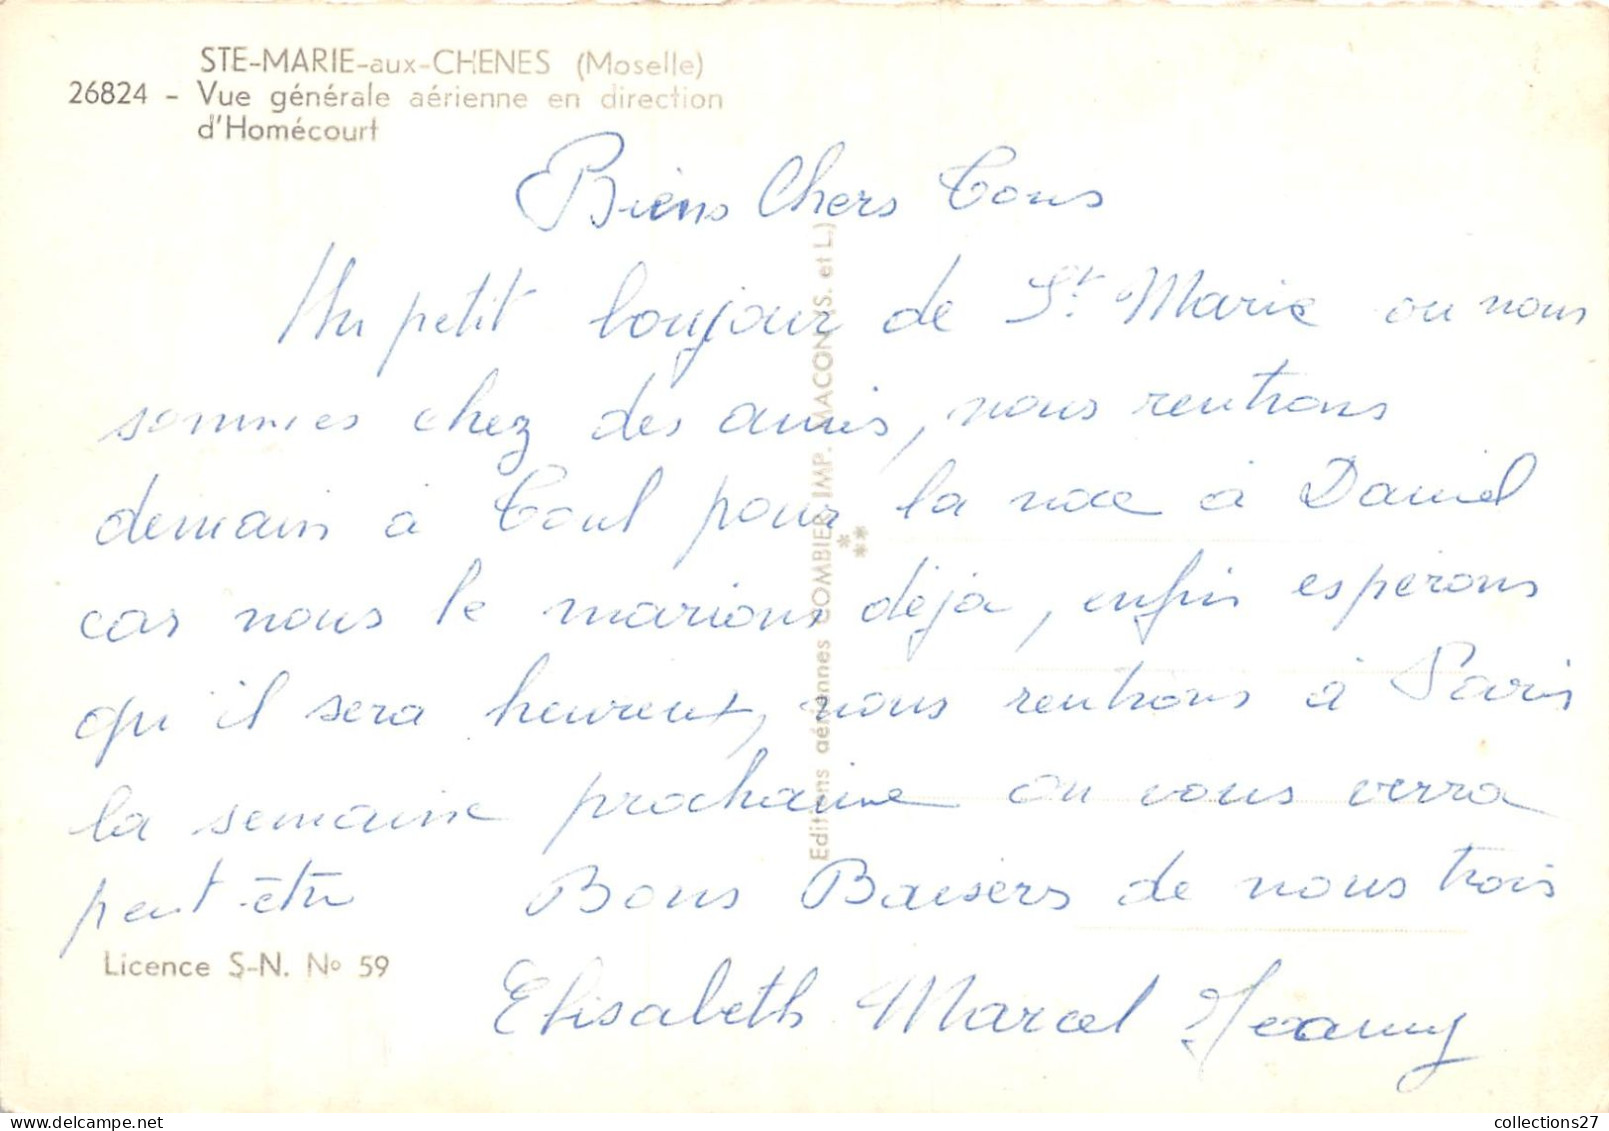 STE-MARIE-aux-CHENES (Moselle)
26824 - Vue générale aérienne en direction
d'Homécourt
Biens Chers Tous
Un petit bonjour de St Marie ou nous
sommes chez des amis, nous rentrons
demain à Toul pour la noce à Daniel
car nous le marions déja, enfin esperons
qu'il sera heureux, nous rentrons à Paris
la semaine prochaine on vous verra
peut-être Bons Baisers de nous trois
Licence S-N. No 59
Elisabeth Marcel Jeanny
Editions aériennes COMBIER IMP. MACON (S. et L.)
collections27